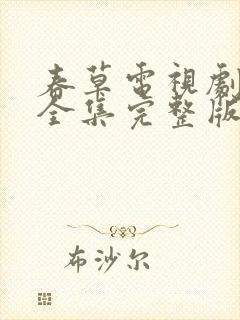 春草電視劇
全集完整版
布沙尔